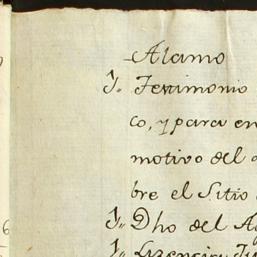 Alamo
J., Testimonio
co, y para en
motivo del
bre el Sitio
J., Dho del A
J.,
6